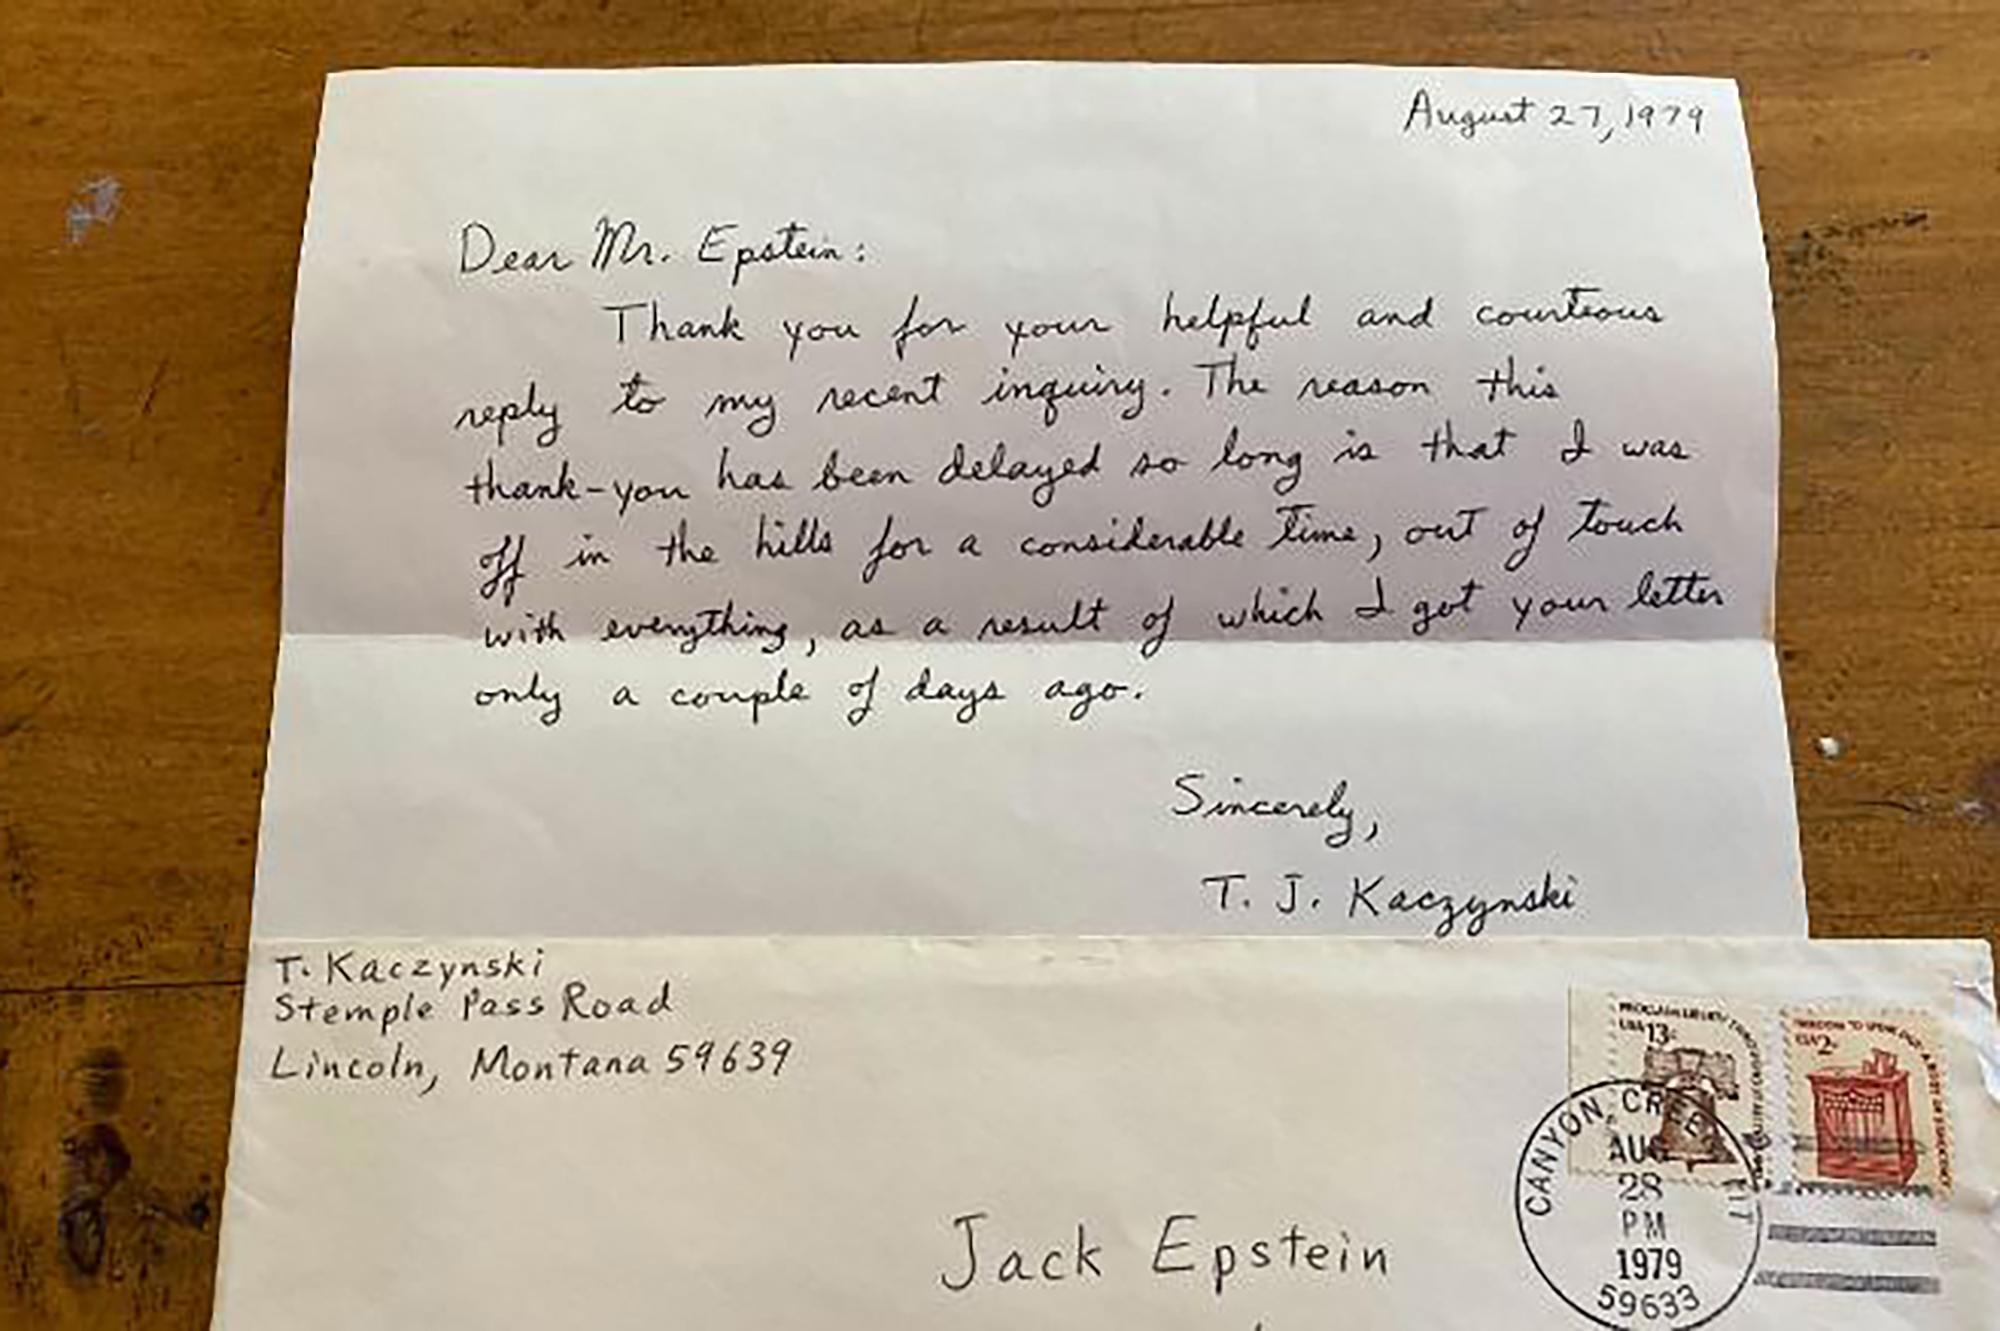 August 27, 1979
Dear Mr. Epstein:
Thank you for your helpful and courteous
reply to my recent inquiry. The reason this
thank-you has been delayed so long is that I was
off in the hills for a considerable time, out of touch
with everything, as a result of which I got your letter
only a couple of days ago.
Sincerely,
T. J. Kaczynski
T. Kaczynski
Stemple Pass Road
Lincoln, Montana 59639
USA 13c
USA 2c
CANYON CREEK
AUG
28
PM
1979
59633
Jack Epstein